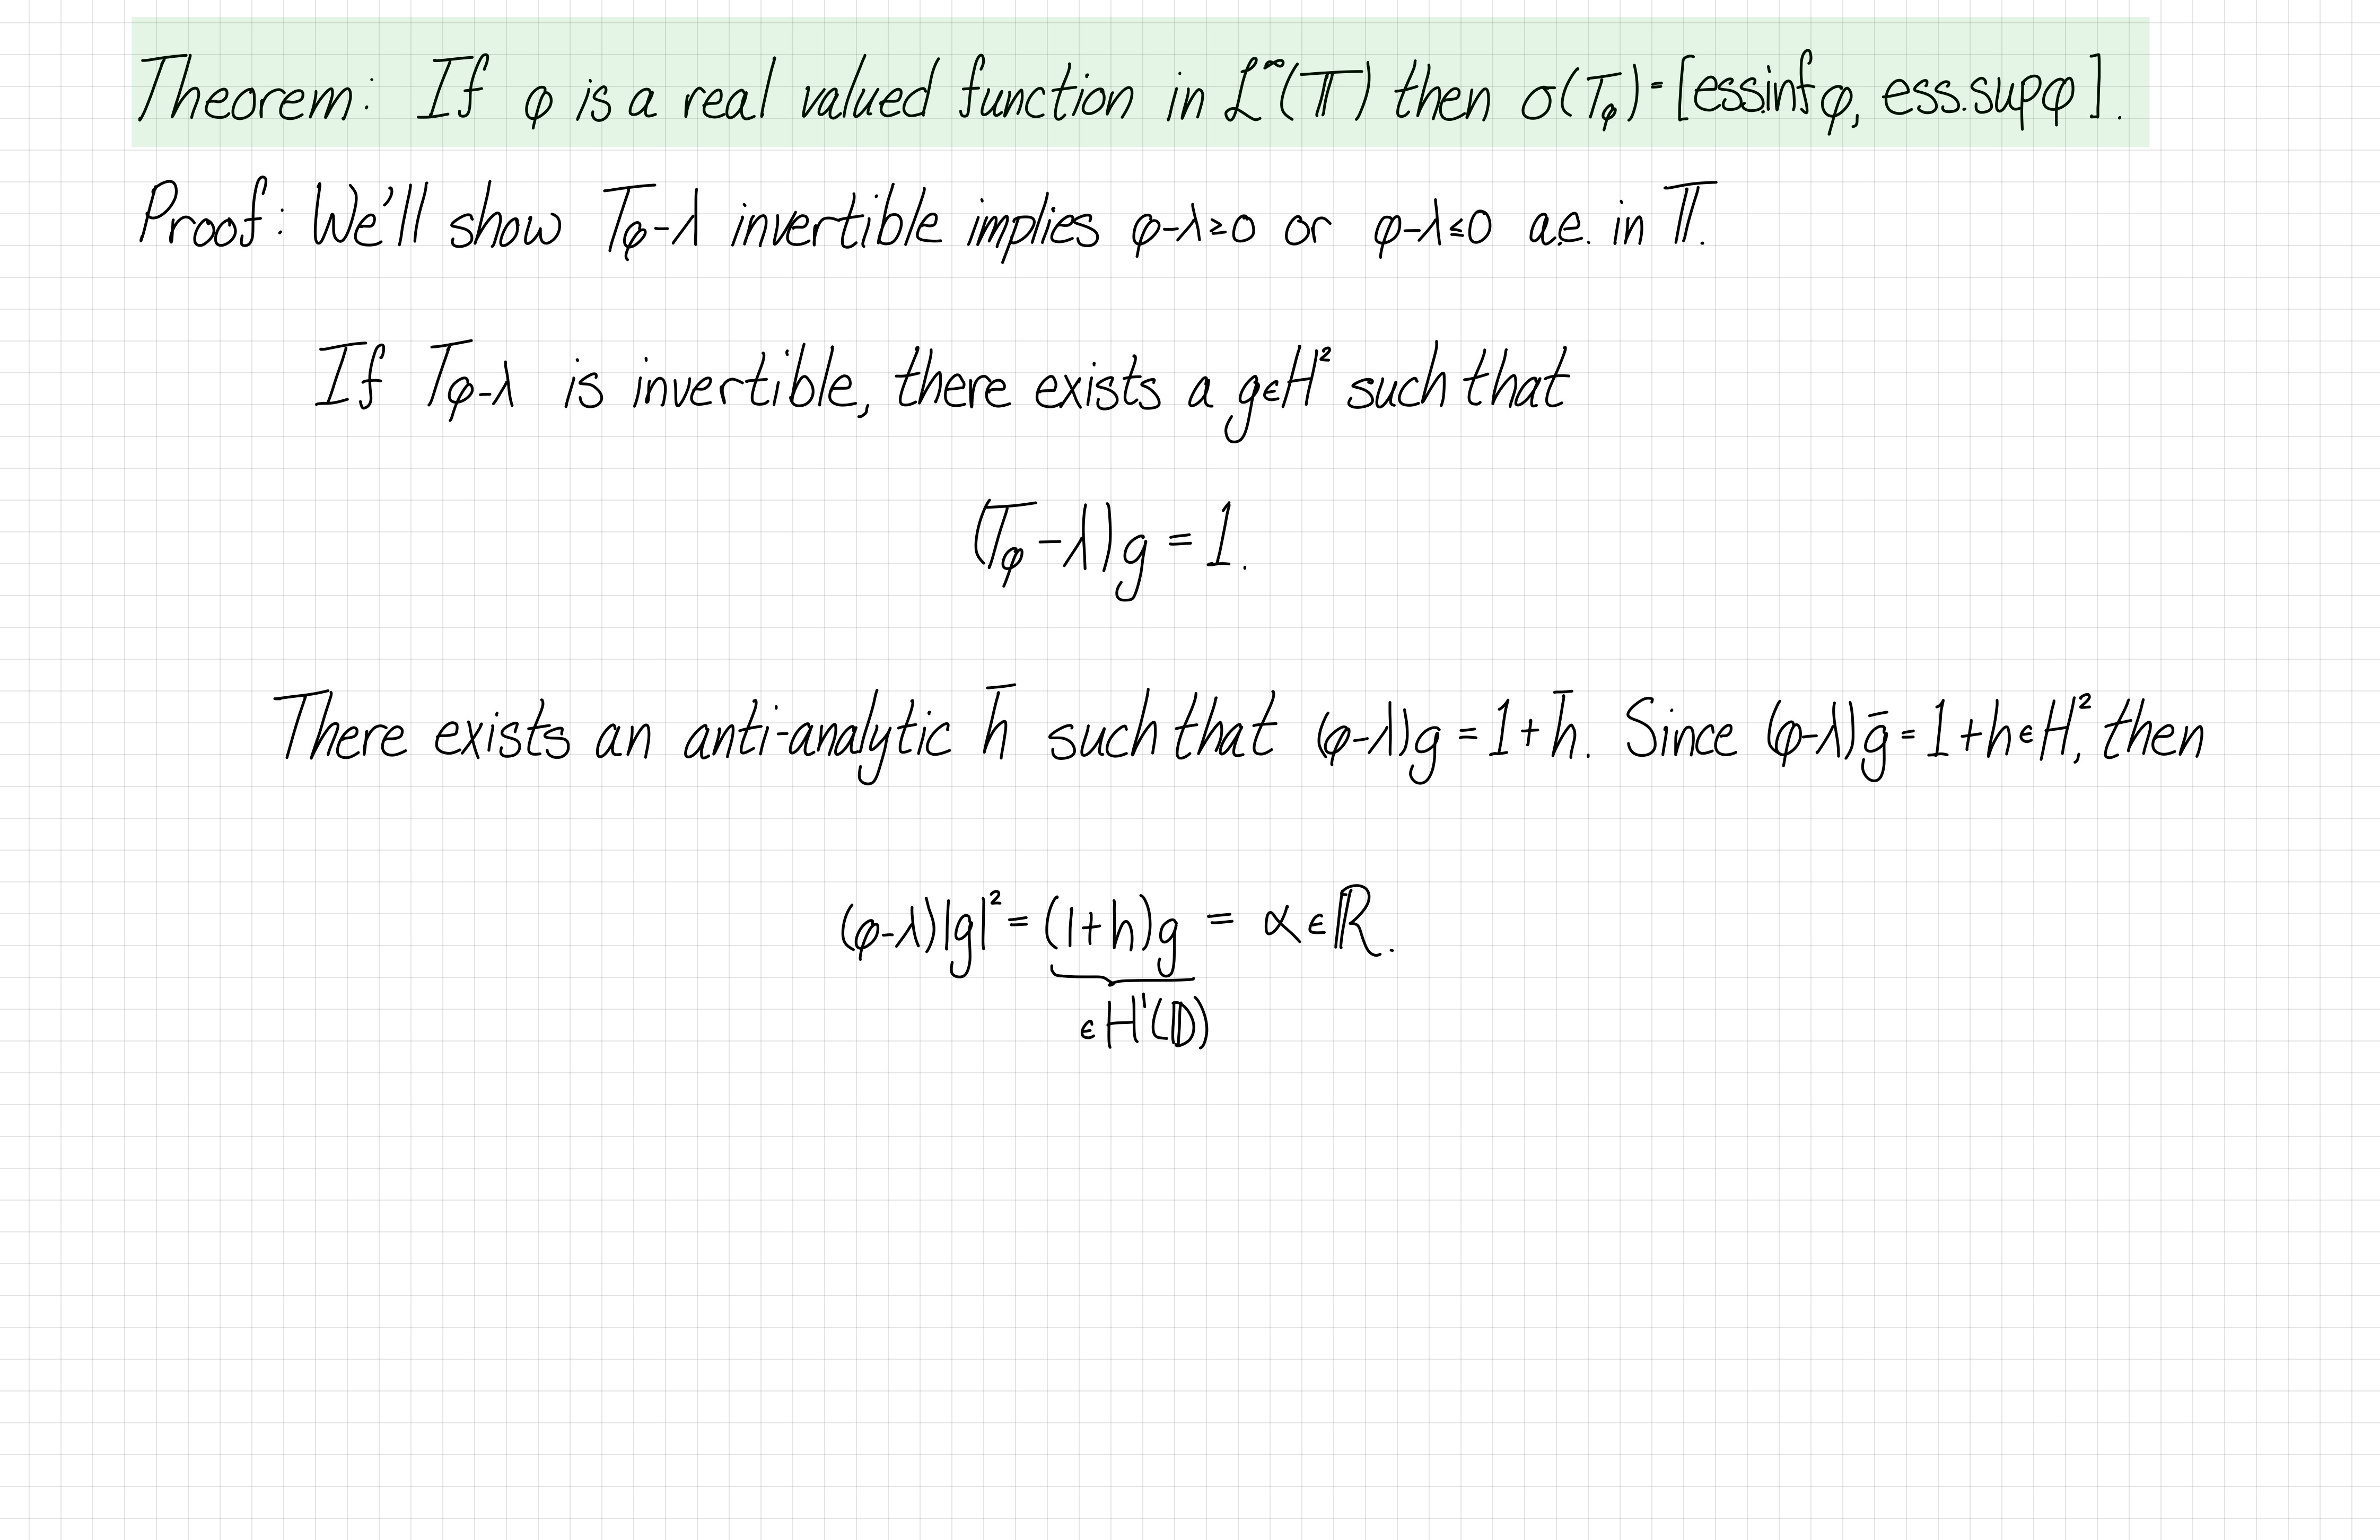 Theorem: If φ is a real valued function in L^∞(𝕋) then σ(T_φ) = [ess.inf φ, ess.sup φ].
Proof: We'll show T_φ-λ invertible implies φ-λ≥0 or φ-λ≤0 a.e. in 𝕋.
If T_φ-λ is invertible, there exists a g∈H² such that
(T_φ-λ)g = 1.
There exists an anti-analytic h̄ such that (φ-λ)g = 1+h̄. Since (φ-λ)ḡ = 1+h∈H², then
(φ-λ)|g|² = (1+h)g = α∈ℝ.
∈H¹(𝔻)